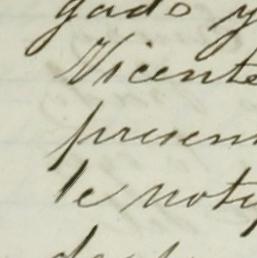 gado y
Vicente
presen
le noti